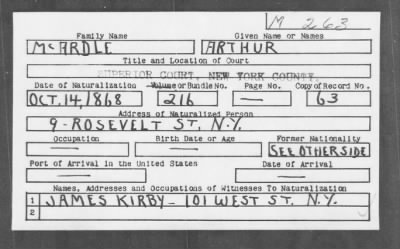 M 263
Family Name Given Name or Names
McARDLE ARTHUR
Title and Location of Court
SUPERIOR COURT, NEW YORK COUNTY.
Date of Naturalization Volume or Bundle No. Page No. Copy of Record No.
OCT. 14, 1868 216 — 63
Address of Naturalized Person
9 - ROSEVELT ST, N.Y.
Occupation Birth Date or Age Former Nationality
— — SEE OTHER SIDE
Port of Arrival in the United States Date of Arrival
— —
Names, Addresses and Occupations of Witnesses To Naturalization
1 JAMES KIRBY - 101 WEST ST. N.Y.
2